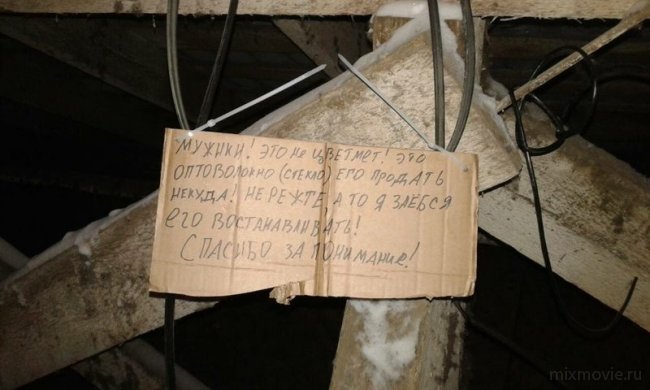 МУЖИКИ! ЭТО НЕ ЦВЕТМЕТ! ЭТО
ОПТОВОЛОКНО (СТЕКЛО) ЕГО ПРОДАТЬ
НЕКУДА! НЕ РЕЖТЕ А ТО Я ЗАЕБСЯ
ЕГО ВОСТАНАВЛИВАТЬ!
СПАСИБО ЗА ПОНИМАНИЕ!
mixmovie.ru